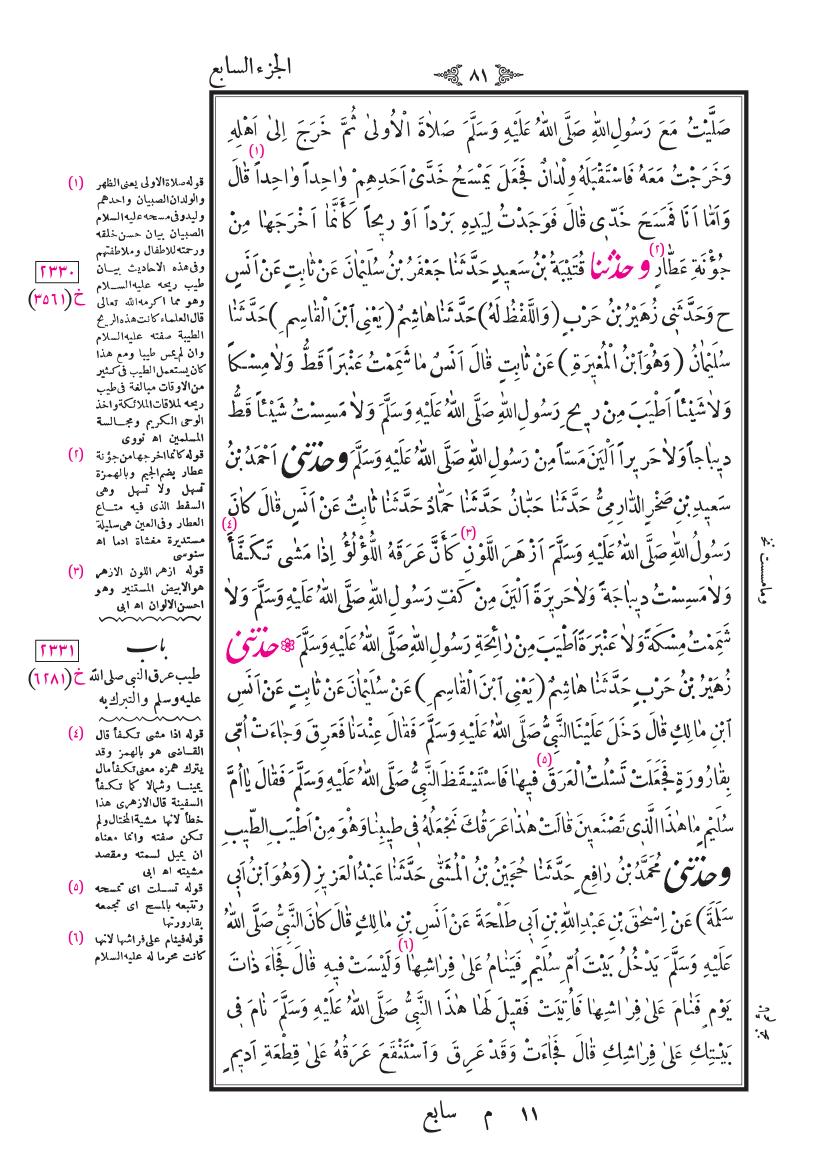 الجزء السابع
٨١
صَلَّيْتُ مَعَ رَسُولِ اللّٰهِ صَلَّى اللّٰهُ عَلَيْهِ وَسَلَّمَ صَلَاةَ الْاُولىٰ ثُمَّ خَرَجَ اِلىٰ اَهْلِهِ
وَخَرَجْتُ مَعَهُ فَاسْتَقْبَلَهُ وِلْدَانٌ فَجَعَلَ يَمْسَحُ خَدَّىْ اَحَدِهِمْ وَاحِداً وَاحِداً قَالَ (١)
وَاَمَّا اَنَا فَمَسَحَ خَدّى قَالَ فَوَجَدْتُ لِيَدِهِ بَرْداً اَوْ ريحاً كَأَنَّمَا اَخْرَجَهَا مِنْ
جُؤْنَةِ عَطَّارٍ (٢) وحدثنا قُتَيْبَةُ بْنُ سَعيدٍ حَدَّثَنَا جَعْفَرُ بْنُ سُلَيْمَانَ عَنْ ثَابِتٍ عَنْ اَنَسٍ
ح وَحَدَّثَنى زُهَيْرُ بْنُ حَرْبٍ (وَاللَّفْظُ لَهُ) حَدَّثَنَا هَاشِمٌ (يَعْنِى ابْنَ الْقَاسِمِ) حَدَّثَنَا
سُلَيْمَانُ (وَهُوَ ابْنُ الْمُغيرَةِ) عَنْ ثَابِتٍ قَالَ اَنَسٌ مَا شَمِمْتُ عَنْبَراً قَطُّ وَلَا مِسْكاً
وَلَا شَيْئاً اَطْيَبَ مِنْ ريحِ رَسُولِ اللّٰهِ صَلَّى اللّٰهُ عَلَيْهِ وَسَلَّمَ وَلَا مَسِسْتُ شَيْئاً قَطُّ
ديبَاجاً وَلَا حَريراً اَلْيَنَ مَسّاً مِنْ رَسُولِ اللّٰهِ صَلَّى اللّٰهُ عَلَيْهِ وَسَلَّمَ وحدثنى اَحْمَدُ بْنُ
سَعيدِ بْنِ صَخْرٍ الدَّارِمِىُّ حَدَّثَنَا حَبَّانُ حَدَّثَنَا حَمَّادٌ حَدَّثَنَا ثَابِتٌ عَنْ اَنَسٍ قَالَ كَانَ
رَسُولُ اللّٰهِ صَلَّى اللّٰهُ عَلَيْهِ وَسَلَّمَ اَزْهَرَ اللَّوْنِ (٣) كَأَنَّ عَرَقَهُ اللُّؤْلُؤُ اِذَا مَشٰى تَكَفَّأَ (٤)
وَلَا مَسِسْتُ ديبَاجَةً وَلَا حَريرَةً اَلْيَنَ مِنْ كَفِّ رَسُولِ اللّٰهِ صَلَّى اللّٰهُ عَلَيْهِ وَسَلَّمَ وَلَا
شَمِمْتُ مِسْكَةً وَلَا عَنْبَرَةً اَطْيَبَ مِنْ رَائِحَةِ رَسُولِ اللّٰهِ صَلَّى اللّٰهُ عَلَيْهِ وَسَلَّمَ ❁ حدثنى
زُهَيْرُ بْنُ حَرْبٍ حَدَّثَنَا هَاشِمٌ (يَعْنِى ابْنَ الْقَاسِمِ) عَنْ سُلَيْمَانَ عَنْ ثَابِتٍ عَنْ اَنَسِ
ابْنِ مَالِكٍ قَالَ دَخَلَ عَلَيْنَا النَّبِىُّ صَلَّى اللّٰهُ عَلَيْهِ وَسَلَّمَ فَقَالَ عِنْدَنَا فَعَرِقَ وَجَاءَتْ اُمّى
بِقَارُورَةٍ فَجَعَلَتْ تَسْلُتُ الْعَرَقَ (٥) فيهَا فَاسْتَيْقَظَ النَّبِىُّ صَلَّى اللّٰهُ عَلَيْهِ وَسَلَّمَ فَقَالَ يَا اُمَّ
سُلَيْمٍ مَا هٰذَا الَّذى تَصْنَعينَ قَالَتْ هٰذَا عَرَقُكَ نَجْعَلُهُ فى طيبِنَا وَهُوَ مِنْ اَطْيَبِ الطّيبِ
وحدثنى مُحَمَّدُ بْنُ رَافِعٍ حَدَّثَنَا حُجَيْنُ بْنُ الْمُثَنّٰى حَدَّثَنَا عَبْدُ الْعَزيزِ (وَهُوَ ابْنُ اَبى
سَلَمَةَ) عَنْ اِسْحٰقَ بْنِ عَبْدِ اللّٰهِ بْنِ اَبى طَلْحَةَ عَنْ اَنَسِ بْنِ مَالِكٍ قَالَ كَانَ النَّبِىُّ صَلَّى اللّٰهُ
عَلَيْهِ وَسَلَّمَ يَدْخُلُ بَيْتَ اُمِّ سُلَيْمٍ فَيَنَامُ عَلىٰ فِرَاشِهَا (٦) وَلَيْسَتْ فيهِ قَالَ فَجَاءَ ذَاتَ
يَوْمٍ فَنَامَ عَلىٰ فِرَاشِهَا فَأُتِيَتْ فَقيلَ لَهَا هٰذَا النَّبِىُّ صَلَّى اللّٰهُ عَلَيْهِ وَسَلَّمَ نَامَ فى
بَيْتِكِ عَلىٰ فِرَاشِكِ قَالَ فَجَاءَتْ وَقَدْ عَرِقَ وَاسْتَنْقَعَ عَرَقُهُ عَلىٰ قِطْعَةِ اَديمٍ
١١ م سابع
وما مسست نخ
(١) قوله صلاة الاولى يعنى الظهر
والولدان الصبيان واحدهم
وليد وفى مسحه عليه السلام
الصبيان بيان حسن خلقه
ورحمته للاطفال وملاطفتهم
وفى هذه الاحاديث بيان
طيب ريحه عليه السلام
وهو مما اكرمه الله تعالى
قال العلماء كانت هذه الريح
الطيبة صفته عليه السلام
وان لم يمس طيبا ومع هذا
كان يستعمل الطيب فى كثير
من الاوقات مبالغة فى طيب
ريحه لملاقات الملائكة واخذ
الوحى الكريم ومجالسة
المسلمين اه نووى
(٢) قوله كانما اخرجها من جؤنة
عطار بضم الجيم وبالهمزة
تسهل ولا تسهل وهى
السقط الذى فيه متاع
العطار وفى العين هى سليلة
مستديرة مغشاة ادما اه
سنوسى
(٣) قوله ازهر اللون الازهر
هو الابيض المستنير وهو
احسن الالوان اه ابى
٢٣٣٠
خ (٣٥٦١)
باب
طيب عرق النبى صلى الله
عليه وسلم والتبرك به
٢٣٣١
خ (٦٢٨١)
(٤) قوله اذا مشى تكفأ قال
القاضى هو بالهمز وقد
يترك همزه معنى تكفأ مال
يمينا وشمالا كما تكفأ
السفينة قال الازهرى هذا
خطأ لانها مشية المختال ولم
تكن صفته وانما معناه
ان يميل لسمته ومقصد
مشيته اه ابى
(٥) قوله تسلت اى تمسحه
وتتبعه بالمسح اى تجمعه
بقارورتها
(٦) قوله فينام على فراشها لانها
كانت محرما له عليه السلام